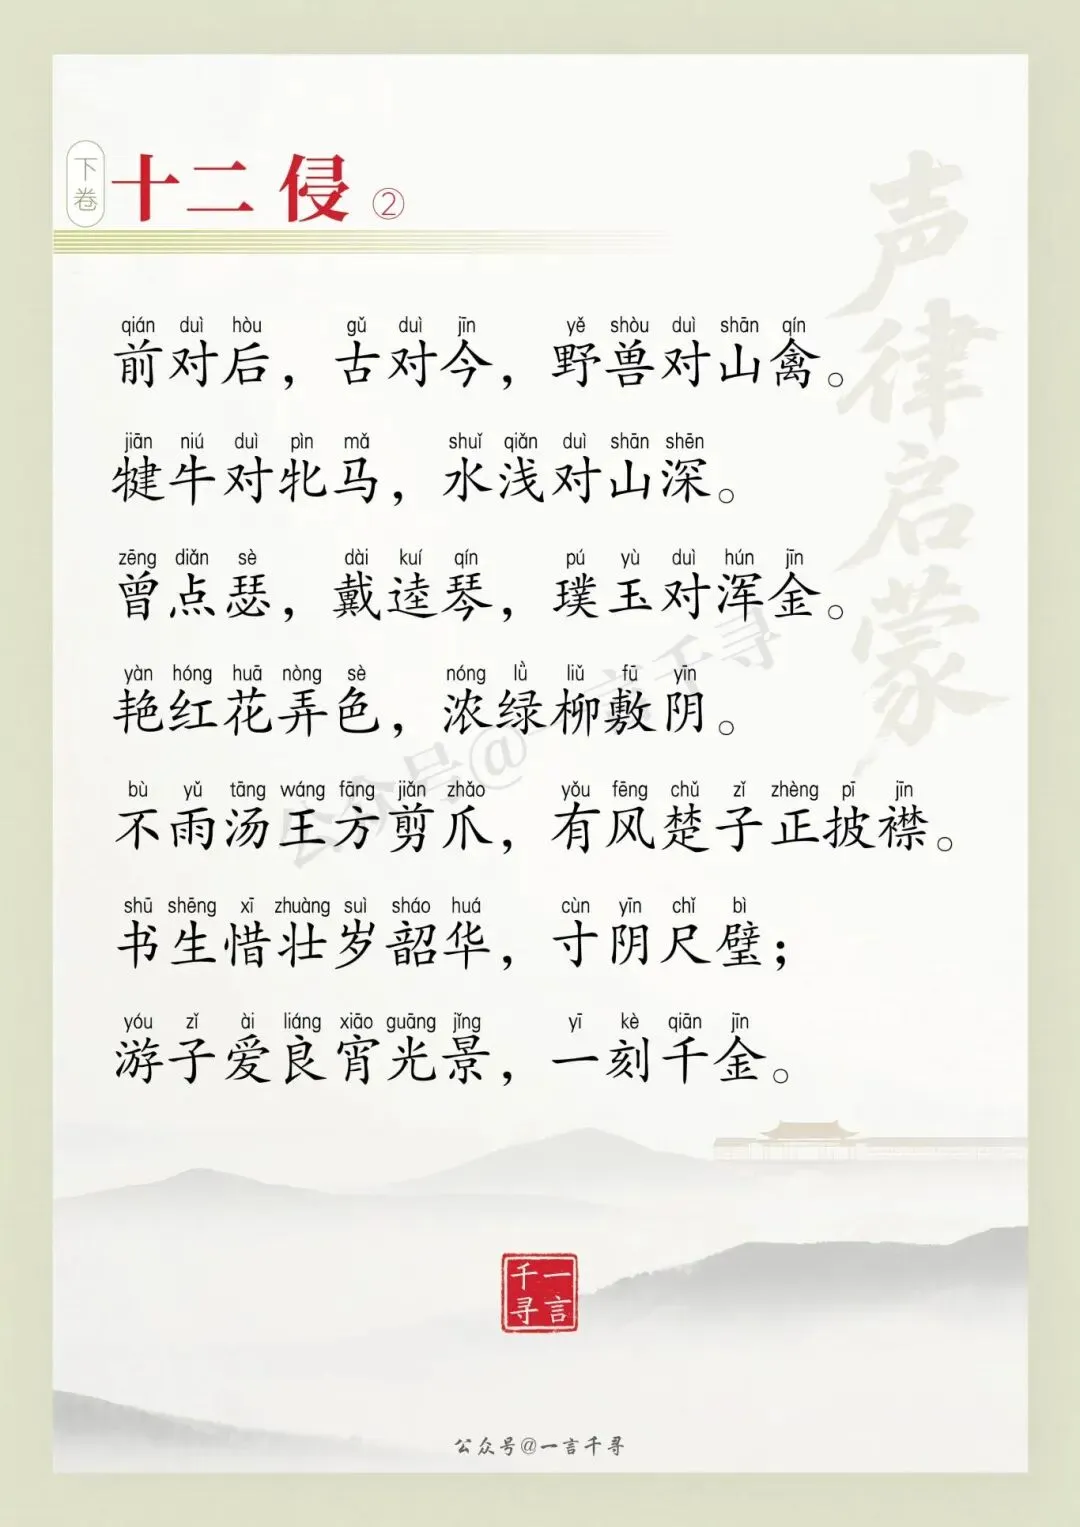 下卷
十二侵②
声律启蒙
qián duì hòu gǔ duì jīn yě shòu duì shān qín
前对后，古对今，野兽对山禽。
jiān niú duì pìn mǎ shuǐ qiǎn duì shān shēn
犍牛对牝马，水浅对山深。
zēng diǎn sè dài kuí qín pú yù duì hún jīn
曾点瑟，戴逵琴，璞玉对浑金。
yàn hóng huā nòng sè nóng lǜ liǔ fū yīn
艳红花弄色，浓绿柳敷阴。
bù yǔ tāng wáng fāng jiǎn zhǎo yǒu fēng chǔ zǐ zhèng pī jīn
不雨汤王方剪爪，有风楚子正披襟。
shū shēng xī zhuàng suì sháo huá cùn yīn chǐ bì
书生惜壮岁韶华，寸阴尺璧；
yóu zǐ ài liáng xiāo guāng jǐng yī kè qiān jīn
游子爱良宵光景，一刻千金。
公众号@一言千寻
一言千寻
公众号@一言千寻